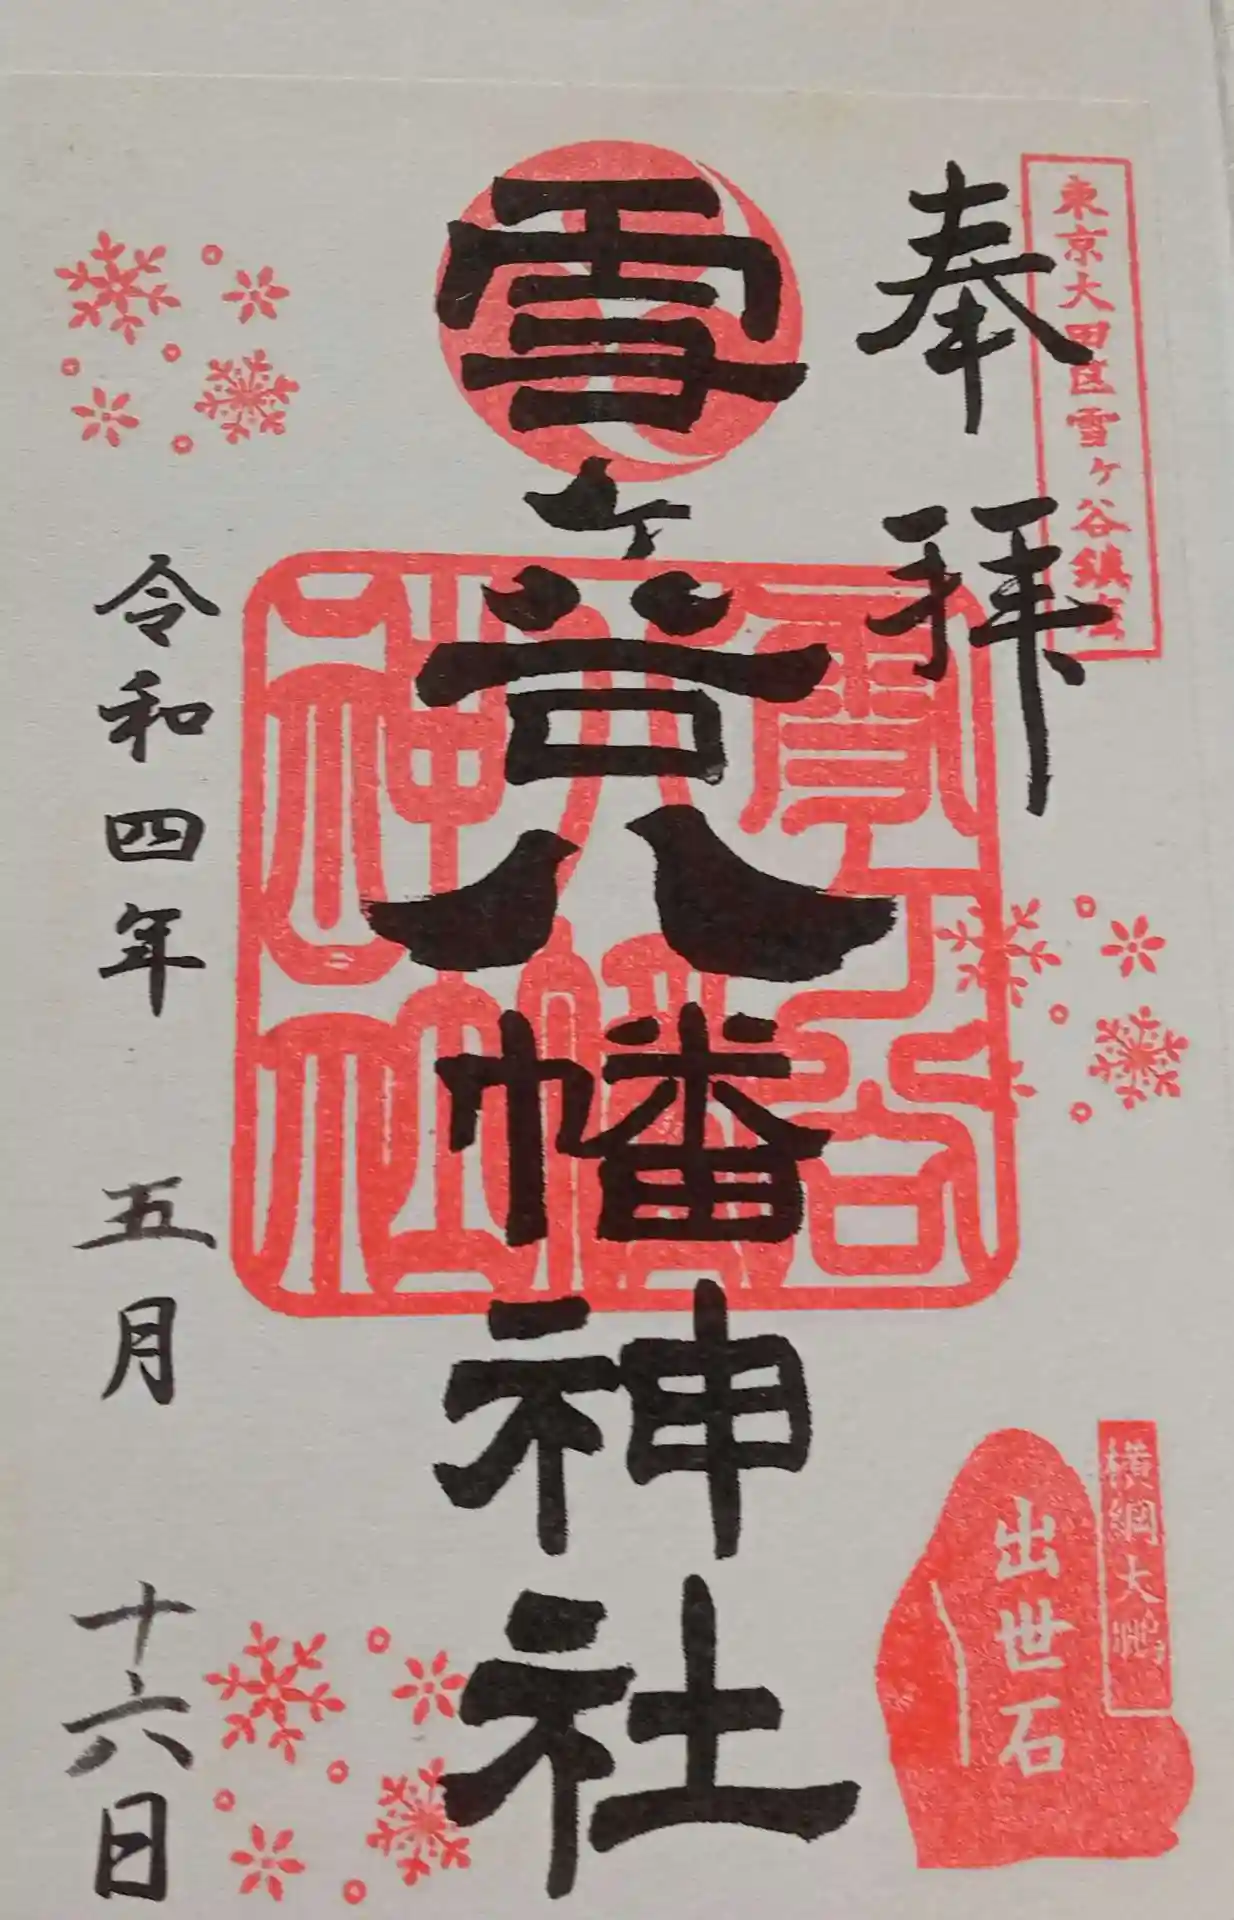 東京大田区雪ヶ谷鎮守
奉拝
雪ヶ谷八幡神社
雪ヶ谷
八幡
神社
横綱大鵬
出世石
令和四年 五月 十六日